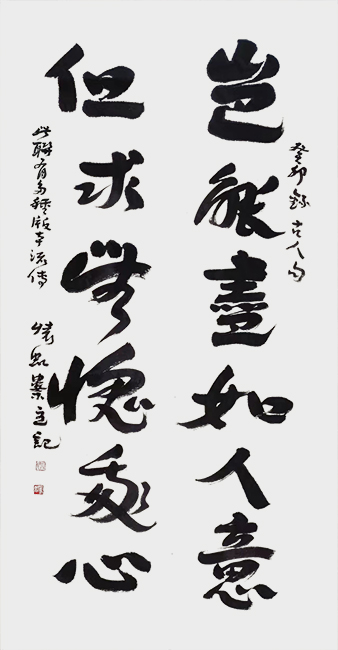 癸卯錄古人句
豈能盡如人意
但求無愧我心
此聯有多種版本流傳